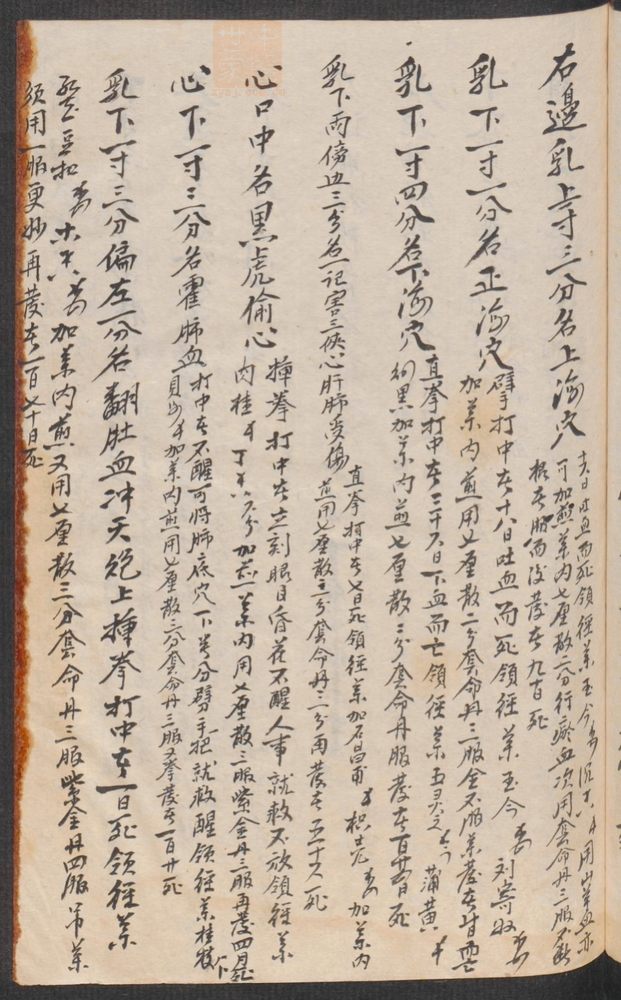 右邊乳上寸三分名上海穴
十六日吐血而死領經藥五今
可加煎藥內七厘散二分行瘀血次用奪命丹三服不斷
根各服而沒發者九十日死
乳下一寸一分名正海穴
擘打中者十八日吐血而死領經藥五今 刘寄奴
加藥內煎用七厘散二分奪命丹三服全不服藥發者
乳下一寸四分名下海穴
直拳打中者三十六日下血而亡領經藥五灵 蒲黃
炒黑加藥內並七厘散三分奪命丹服發者一百死
乳下兩傍血三分名一記害三俠心肝肺受傷
直拳打中者七日死領經藥加石菖甫 枳壳 加藥內
煎用七厘散三分奪命丹三分再發者五十六死
心口中名黑虎偷心
揮拳打中者立刻眼目昏花不醒人事就救不放領經藥
內桂 丁 加煎藥內用七厘散三服紫金丹三服再發四月死
心下一寸三分名霍肺血
打中者不醒可將肺底穴下半分劈手把就救醒領經藥桂枝
貝 加藥內煎用七厘散三分奪命丹三服又拳發者一百廿死
乳下一寸三分偏左一分名翻肚血冲天炮上揮拳打中者一日死領經藥
豆扣 加藥內煎又用七厘散三分奪命丹三服紫金丹四服吊藥
須用一服更妙再發者一百七十日死